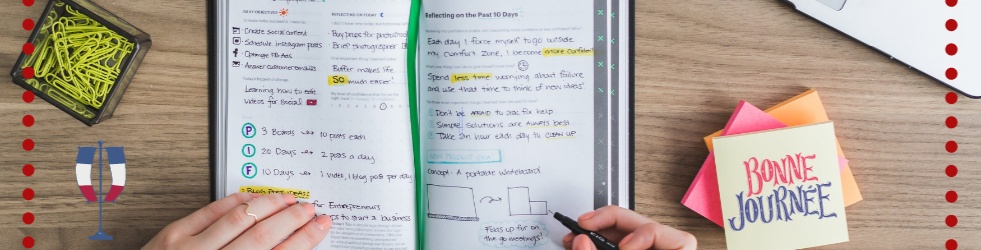 NEXT OBJECTIVES
Create Social content
Schedule Instagram posts
Optimize FB Ads
Answer customer emails
Learning how to edit
videos for Social
P 3 Boards 10 posts each
I 20 Days 2 posts a day
F 10 Days 1 video, 1 blog post per day
Blog Post Ideas:
for Entrepreneurs
to start a business
REFLECTING ON TODAY
Buy props for photoshoot
Brief photographer
Buffer makes life
SO much easier!
Reflecting on the Past 10 Days
Each day I force myself to go outside
my comfort zone, I become more confident
Spend less time worrying about failure
and use that time to think of new ideas!
Don't be AFRAID to ask for help
Simple solutions are ALWAYS best
Take an hour each day to CLEAN UP
NEW PRODUCT IDEA!
Concept: A portable whiteboard
Folds up for on
the go meetings!
BONNE
JOURNÉE